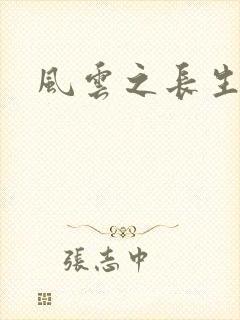 風雲之長生
張志中